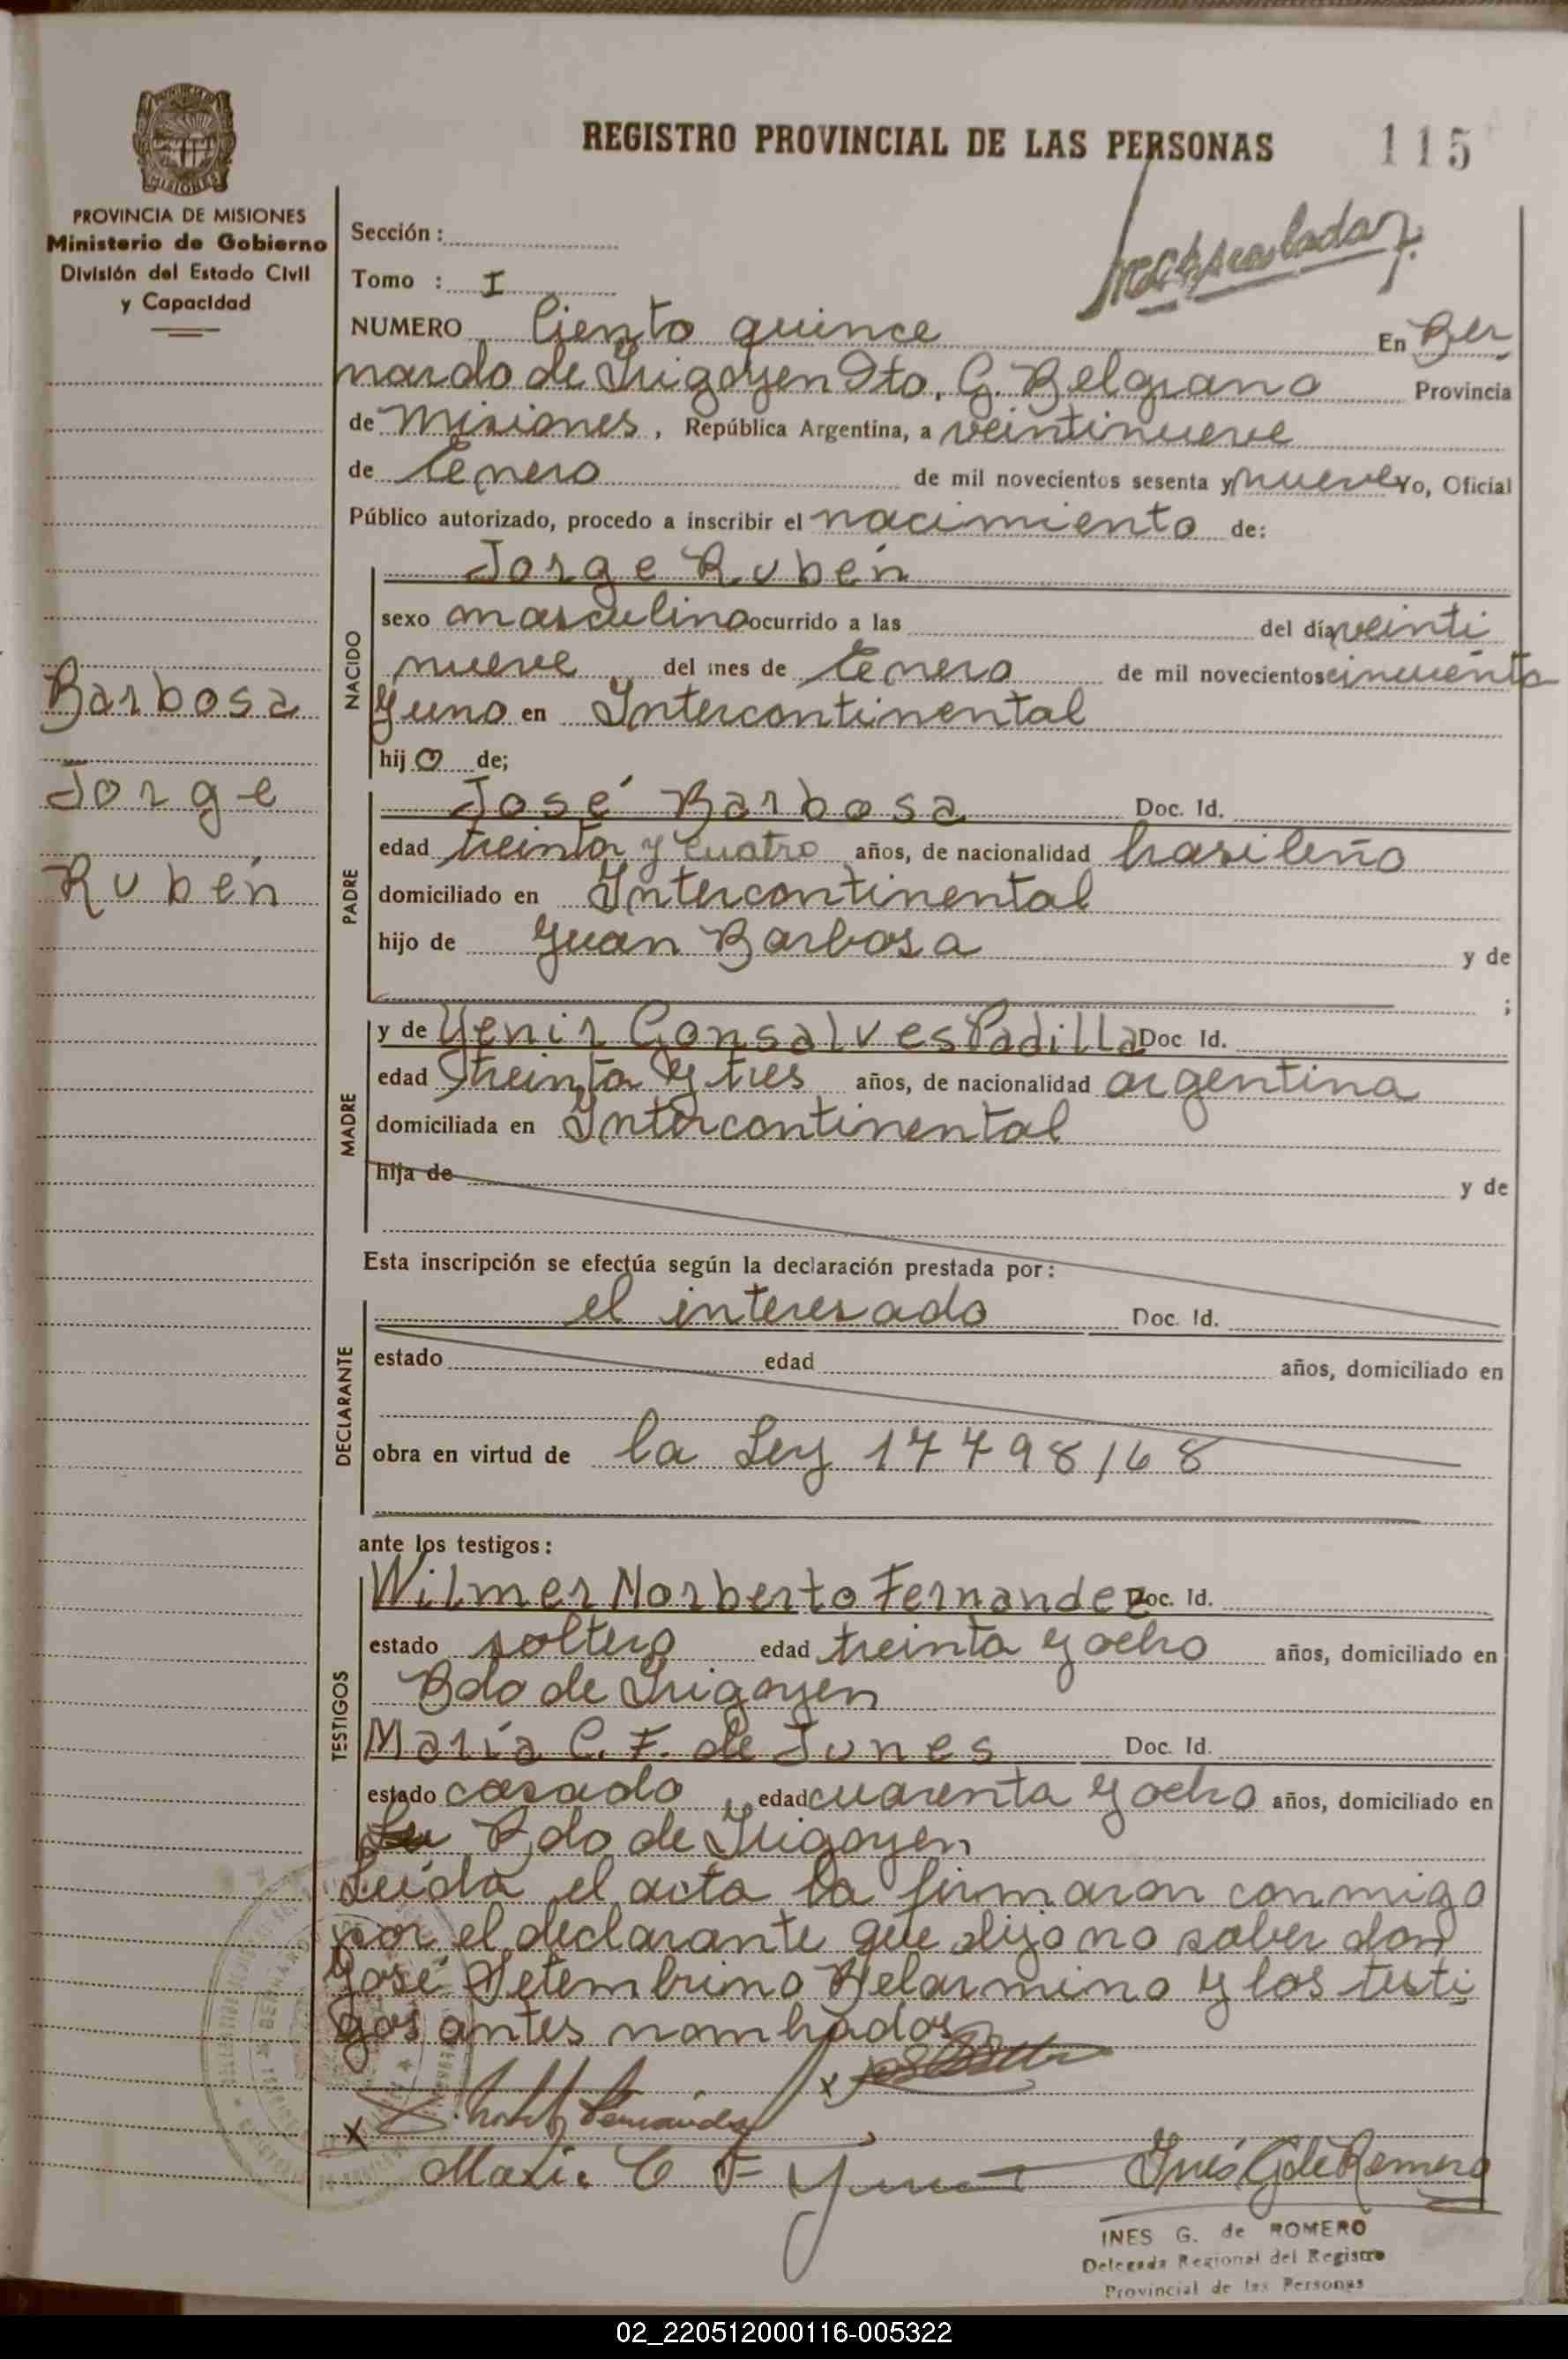 REGISTRO PROVINCIAL DE LAS PERSONAS
115
PROVINCIA DE MISIONES
Ministerio de Gobierno
División del Estado Civil
y Capacidad
Sección :
Tomo : I
NUMERO Ciento quince En Ber
nardo de Irigoyen Dto. G. Belgrano Provincia
de Misiones, República Argentina, a veintinueve
de Enero de mil novecientos sesenta y nueve Yo, Oficial
Público autorizado, procedo a inscribir el nacimiento de:
Jorge Rubén
NACIDO
sexo masculino ocurrido a las del día veinti
nueve del mes de Enero de mil novecientos cincuenta
y uno en Intercontinental
hijo de;
Barbosa
Jorge
Rubén
PADRE
José Barbosa Doc. Id.
edad treinta y cuatro años, de nacionalidad brasileño
domiciliado en Intercontinental
hijo de Juan Barbosa y de
;
MADRE
y de Yenir Gonsalves Padilla Doc Id.
edad treinta y tres años, de nacionalidad argentina
domiciliada en Intercontinental
hija de y de
Esta inscripción se efectúa según la declaración prestada por:
DECLARANTE
el interesado Doc. Id.
estado edad años, domiciliado en
obra en virtud de la Ley 17498/68
ante los testigos:
TESTIGOS
Wilmer Norberto Fernandez Doc. Id.
estado soltero edad treinta y ocho años, domiciliado en
Bdo de Irigoyen
María C. F. de Junes Doc. Id.
estado casado, edad cuarenta y ocho años, domiciliado en
Bdo de Irigoyen
Leída el acta la firmaron conmigo
por el declarante que dijo no saber don
José Setembrino Belarmino y los testi
gos antes nombrados
x
x Fernández
Maria C F Junes
Inés G de Romero
INES G. de ROMERO
Delegada Regional del Registro
Provincial de las Personas
02_220512000116-005322